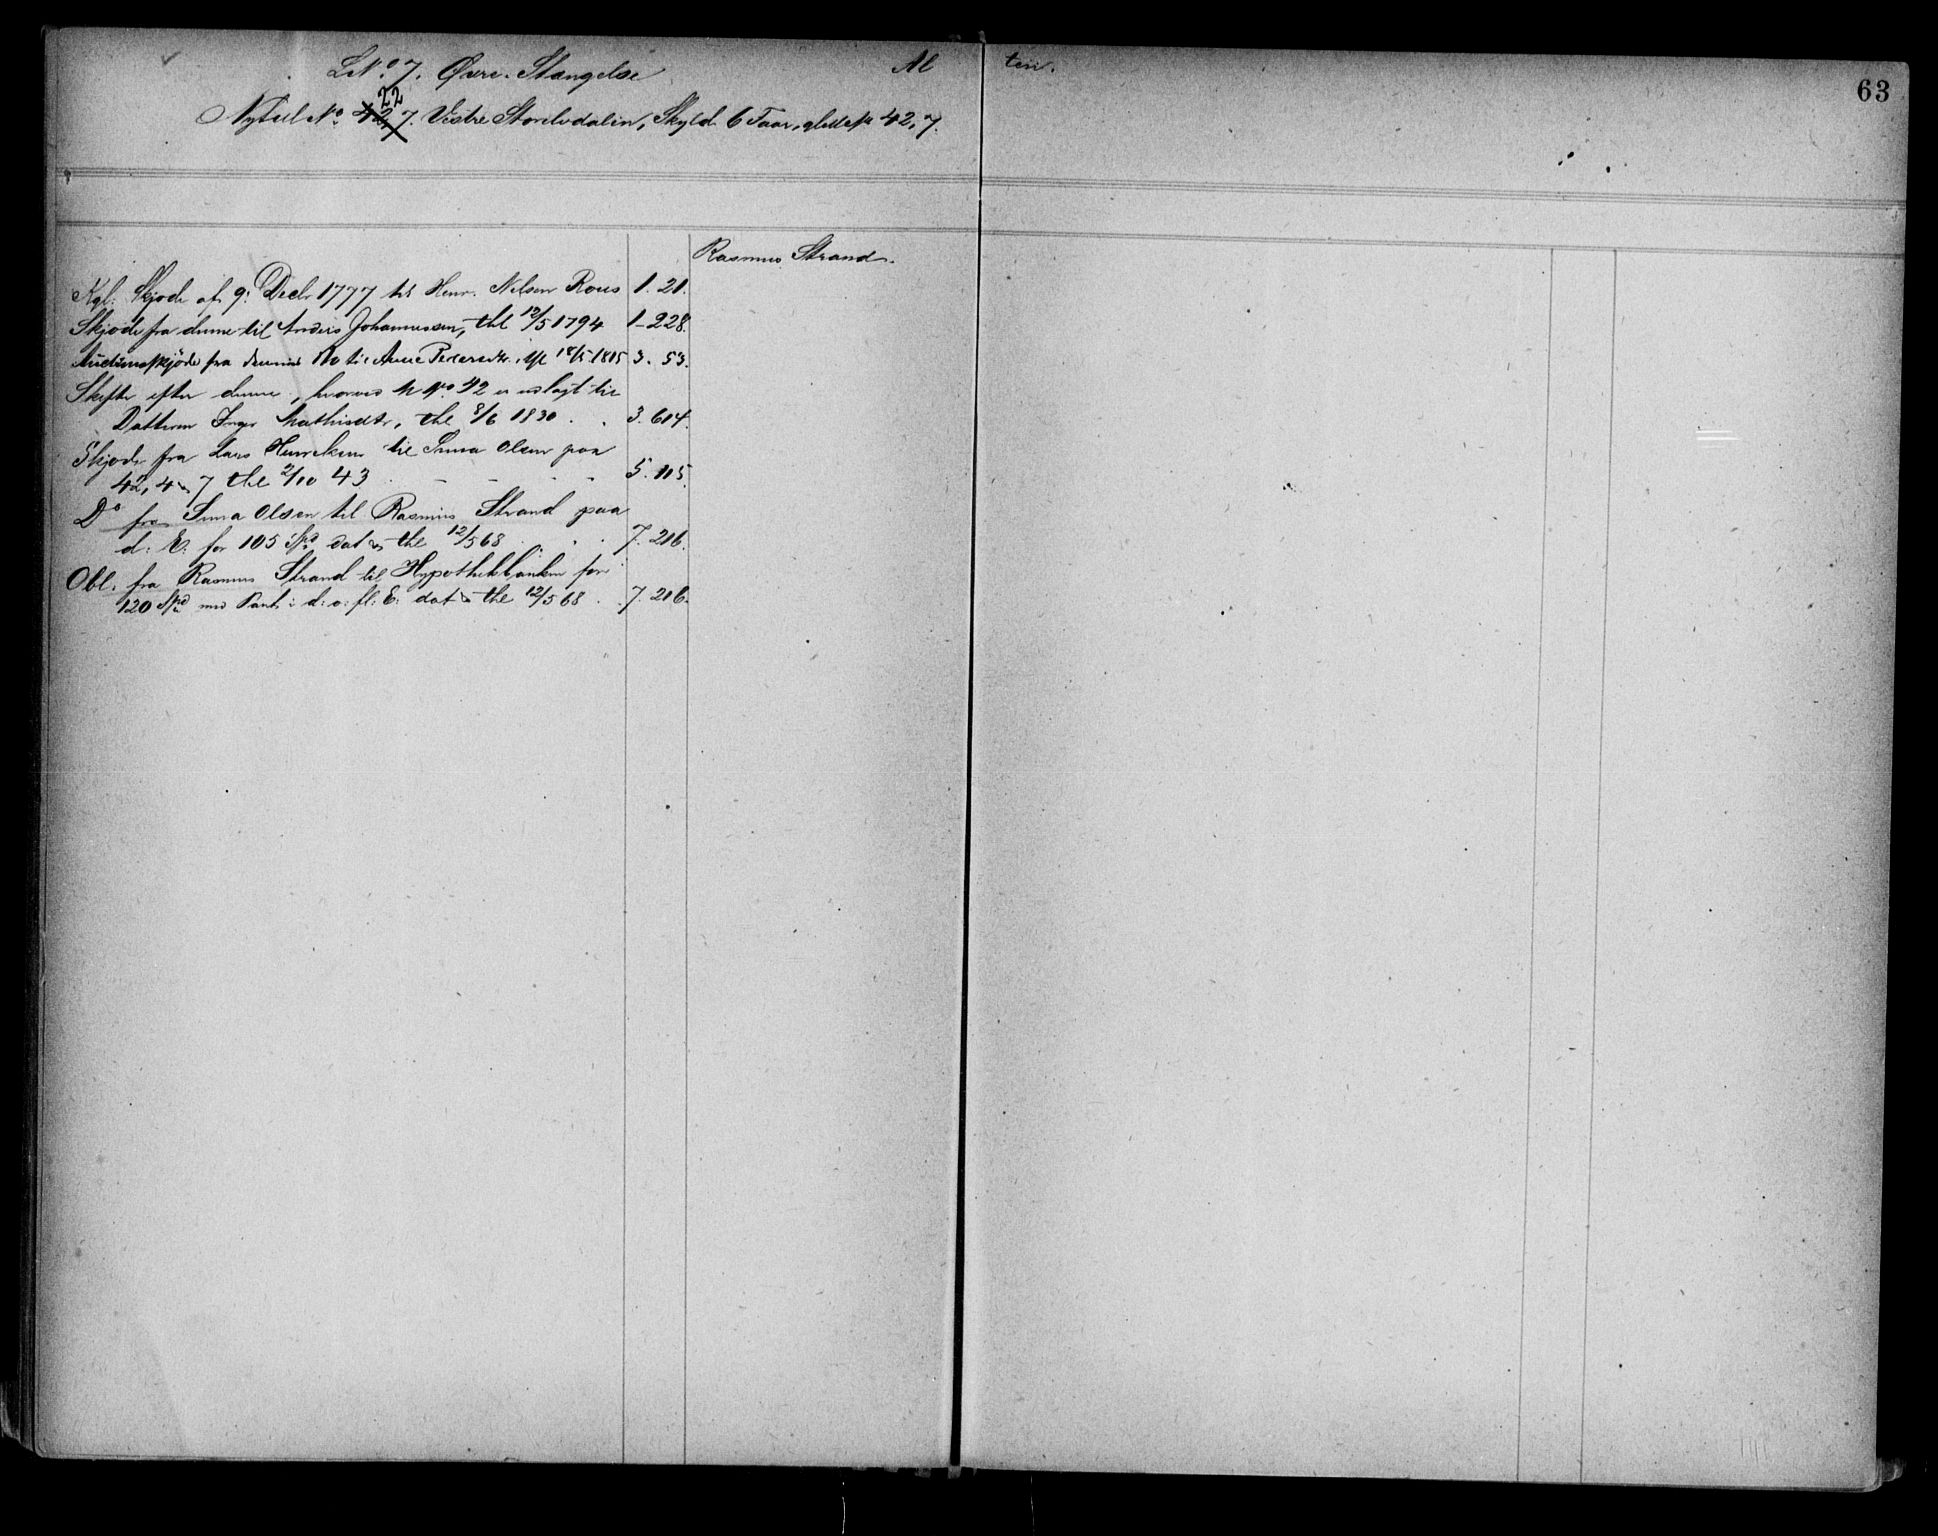 LNo. 7. Øvre Stangelse Al ten.
63
22
Nyt ul No. 42, 7. Vestre Storelvdalen, Skyld 6 Taar, 42, 7.
Rasmus Strand.
Kgl: Skjøde af 9: Decbr 1777 til Henr. Nelsen Roos 1. 21.
Skjøde fra denne til Anders Johannessen, thl 12/5 1794 1-228.
Auctionsskjøde fra dennes Bo til Anne Pedersdtr. thl 18/5 1805 3. 53.
Skifte efter denne, hvorved M No. 42 er udlagt til
Datteren Inger Mathisdtr, thl 8/6 1830 3. 614.
Skjøde fra Lars Henriksen til Olsen paa
42, 4 & 7 thl 2/10 43 5. 115.
Do fra Olsen til Rasmus Strand paa
d: E: for 105 Spd dat & thl 12/5 68 7. 216.
Obl. fra Rasmus Strand til Hypothekbanken for
120 Spd med Pant i d: o: fl: E: dat & thl 12/5 68 7. 216.